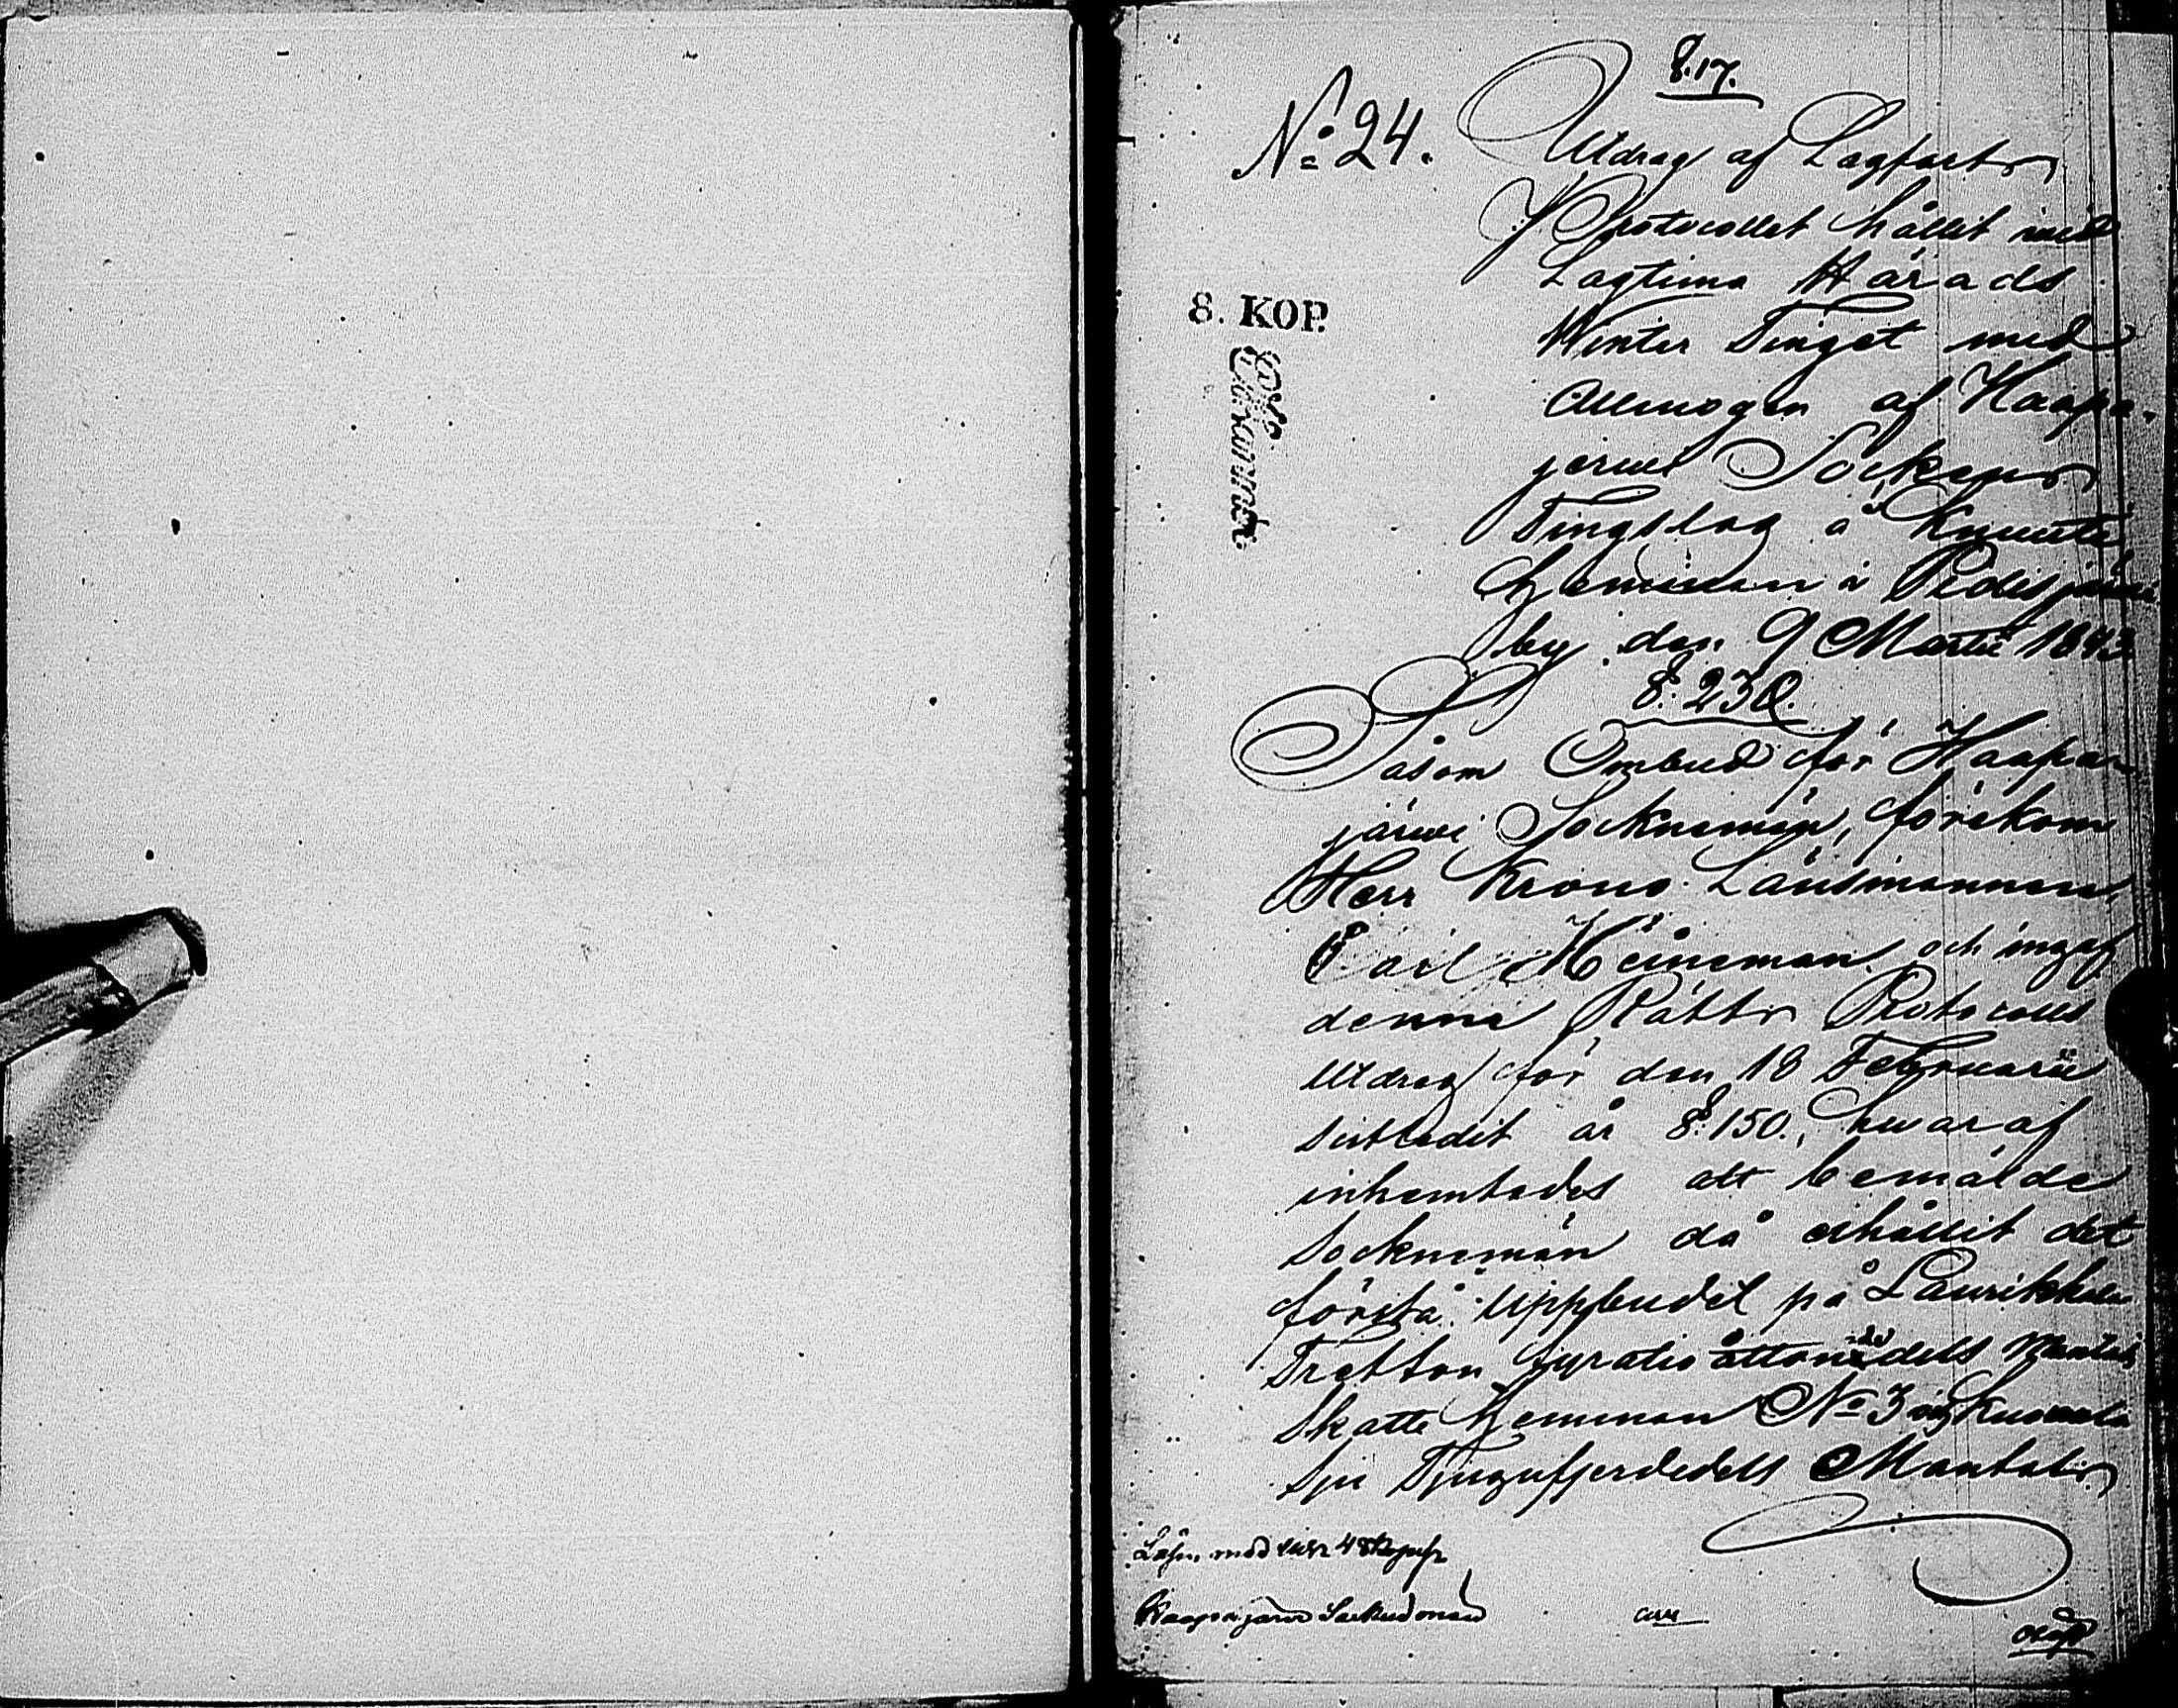 §.17.
No 24.
Utdrag af Lagfarts
Protocollet hållit vid
Lagtima Härads
Winter Tinget med
Allmogen af Haapa-
jerwi Sockens
Tingslag å Knuuti
hemman i Pidis järwi
by den 9 Martii 1843
8. KOP.
§. 230.
Såsom Ombud för Haapa-
järwi Socknemän, förekom
Herr Krono Länsmannen
Carl Heineman och ingaf
denna Rätts Protocolls
Utdrag för den 18 Februarii
sistledit år §.150., hwaraf
inhemtades att bemälde
Socknemän då erhållit det
första uppbudet på Laurikkala
Tretton fyratio åttondedels Mantals
Skatte hemman No 3 i
Sju Tjugufjerdedels Mantals
Haapajärwi Socknemän
och